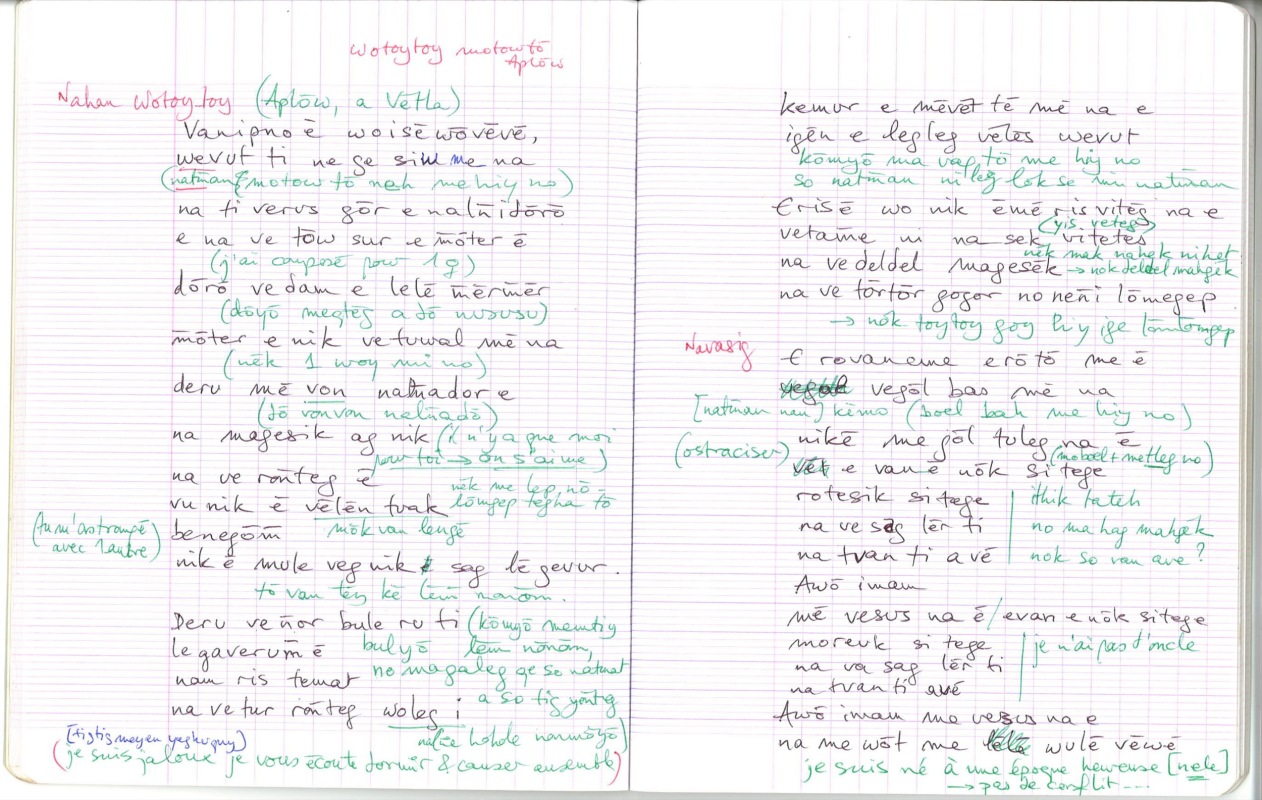 wotoytoy motow tō
Aplōw
Nahan wotoytoy (Aplōw, a Vētla)
Vanipno ē wo isē wōvēvē,
wevut ti ne ge siw me na
(natm̄an motow tō neh me hiy no)
na ti verus gōr e nalñidōrō
e na ve tōw sur e m̄ōter ē
(j'ai composé pour 1 ♀)
dōrō ve dam e lelē m̄ērm̄ēr
(dōyō megteg a tō nususu)
m̄ōter e nik ve tuwal mē na
(nēk 1 woy mi no)
deru mē von nalm̄ador e
(tō vonvon nalm̄adō)
na magesik ag nik (il n'y a que moi
pour toi → on s'aime)
na ve rōñteg ē
nēk me lep, nō-
vu nik ē vēlēn tvak lōmgep tegha tō
benegōm̄ mōk van lengē
(tu m'as trompé
avec 1 autre)
nik ē mule veg nik sag lē gevur.
tō van tēy kē lēm̄ nonōm.
Deru ve ñor bule ru ti (kōmyō memtiy
le gaverum̄ ē bulyō lēm̄ nōnōm,
nam ris temat no magaleg qe so natmat
na ve tur rōñteg woleg i a so tig yōñteg
nalñe hohole nonmōyō)
[tigtig meyen yegkugny]
(je suis jaloux je vous écoute dormir & causer ensemble)
kemur e mēvēt tē mē na e
igēn e legleg vēlēs wevut
kōmyō ma vap tō me hiy no
so natm̄an ni leg lok se mi natm̄an
Erisē wo nik ēmē ris vitēg na e
(yis veteg)
vetam̄e ni na sek vitetes
nēk mak nahek nihet
na ve deldel magesēk → nōk deldel mahgēk
na ve tōrtōr gogor no neñi lōmegep
→ nōk toytoy goy hiy ige lōmlōmgep
Navasig
E rovaneme erōtō me ē
vegōl bas mē na
[natm̄an nan] kēmo (boel bah me hiy no)
nikē me gōl tuleg na ē
(ostraciser) (moboel + metleg no)
e van ē nōk si tege
rotesik si tege ithik tateh
na ve sag lēr ti no ma hag mahgēk
na tvan ti avē nok so van ave?
Awō imam
mē vesus na ē / evan e nōk sitege
moreuk si tege je n'ai pas d'oncle
na va sag lēr ti
na tvan ti avē
Awō imam me vesus na e
na me wōt me wulē vēwē
je suis né à une époque heureuse [nele]
→ pas de conflit ...